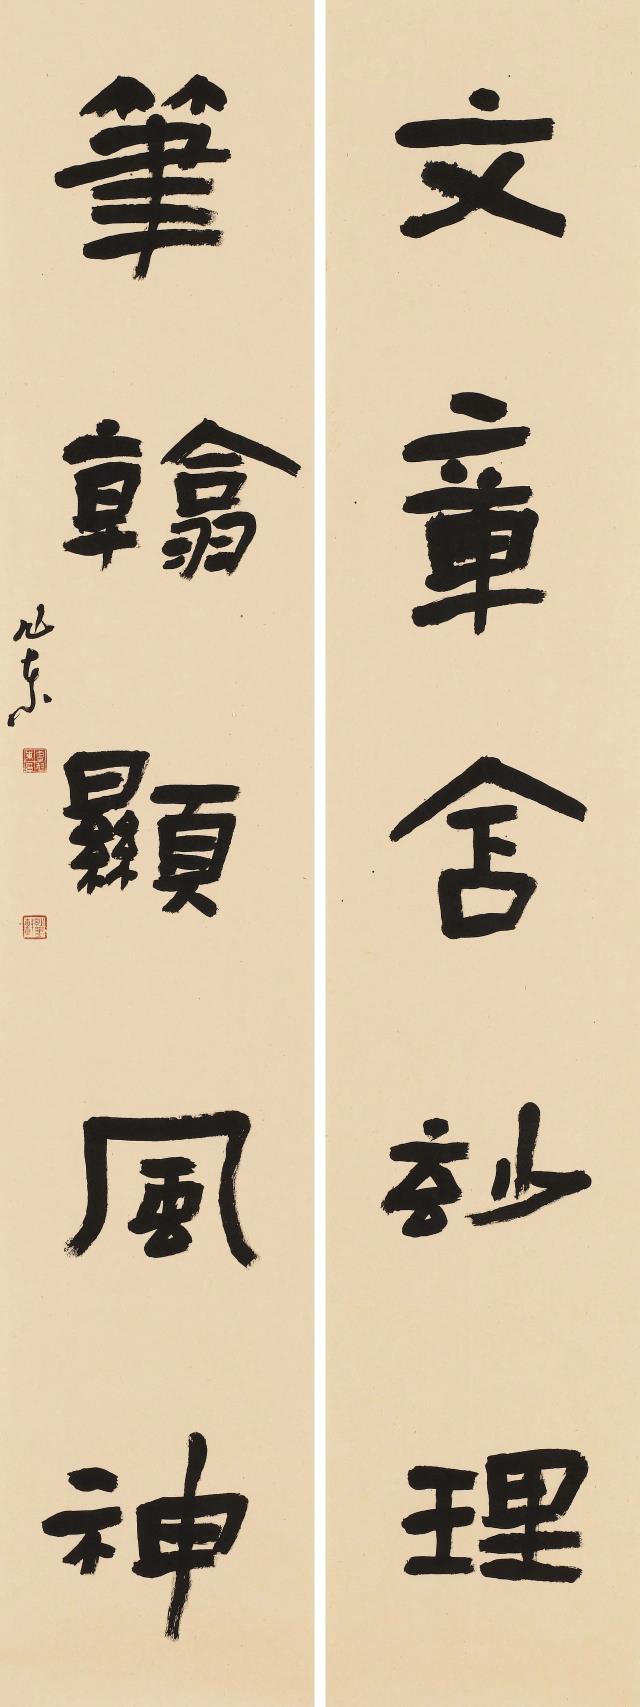 文章含玅理
筆翰顯風神